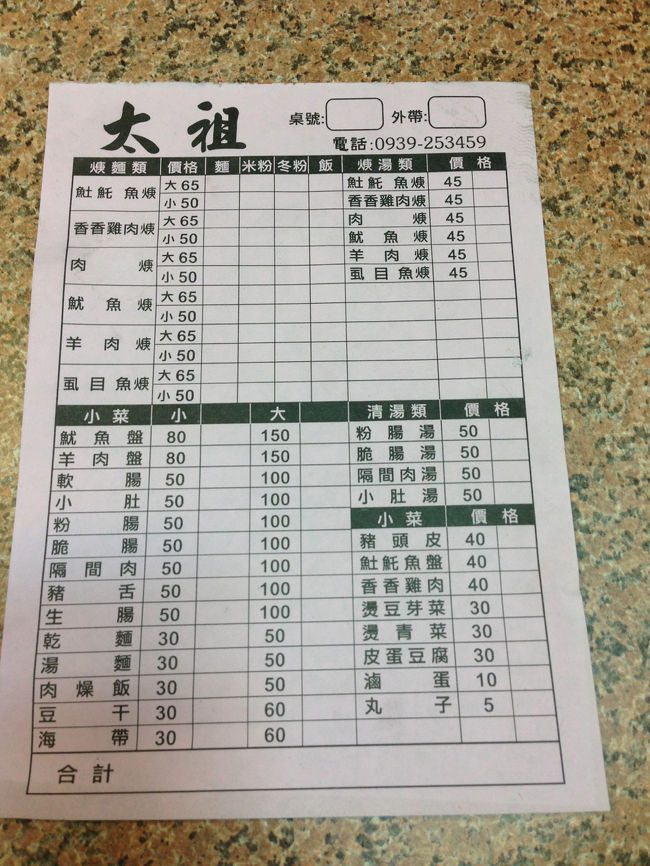 太祖 桌號: 外帶:
電話:0939-253459
焿麵類 價格 麵 米粉 冬粉 飯 焿湯類 價格
䱋魠魚焿 大65 䱋魠魚焿 45
小50 香香雞肉焿 45
香香雞肉焿 大65 肉焿 45
小50 魷魚焿 45
肉焿 大65 羊肉焿 45
小50 虱目魚焿 45
魷魚焿 大65
小50
羊肉焿 大65
小50
虱目魚焿 大65
小50
小菜 小 大 清湯類 價格
魷魚盤 80 150 粉腸湯 50
羊肉盤 80 150 脆腸湯 50
軟腸 50 100 隔間肉湯 50
小肚 50 100 小肚湯 50
粉腸 50 100 小菜 價格
脆腸 50 100 豬頭皮 40
隔間肉 50 100 䱋魠魚盤 40
豬舌 50 100 香香雞肉 40
生腸 50 100 燙豆芽菜 30
乾麵 30 50 燙青菜 30
湯麵 30 50 皮蛋豆腐 30
肉燥飯 30 50 滷蛋 10
豆干 30 60 丸子 5
海帶 30 60
合計